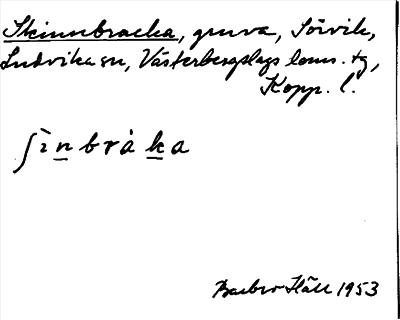 Skinnbracka, gruva, Sörvik,
Ludvika sn, Västerbergslags doms. tg,
Kopp. l.
ʃìnbràka
Barbro Häll 1953